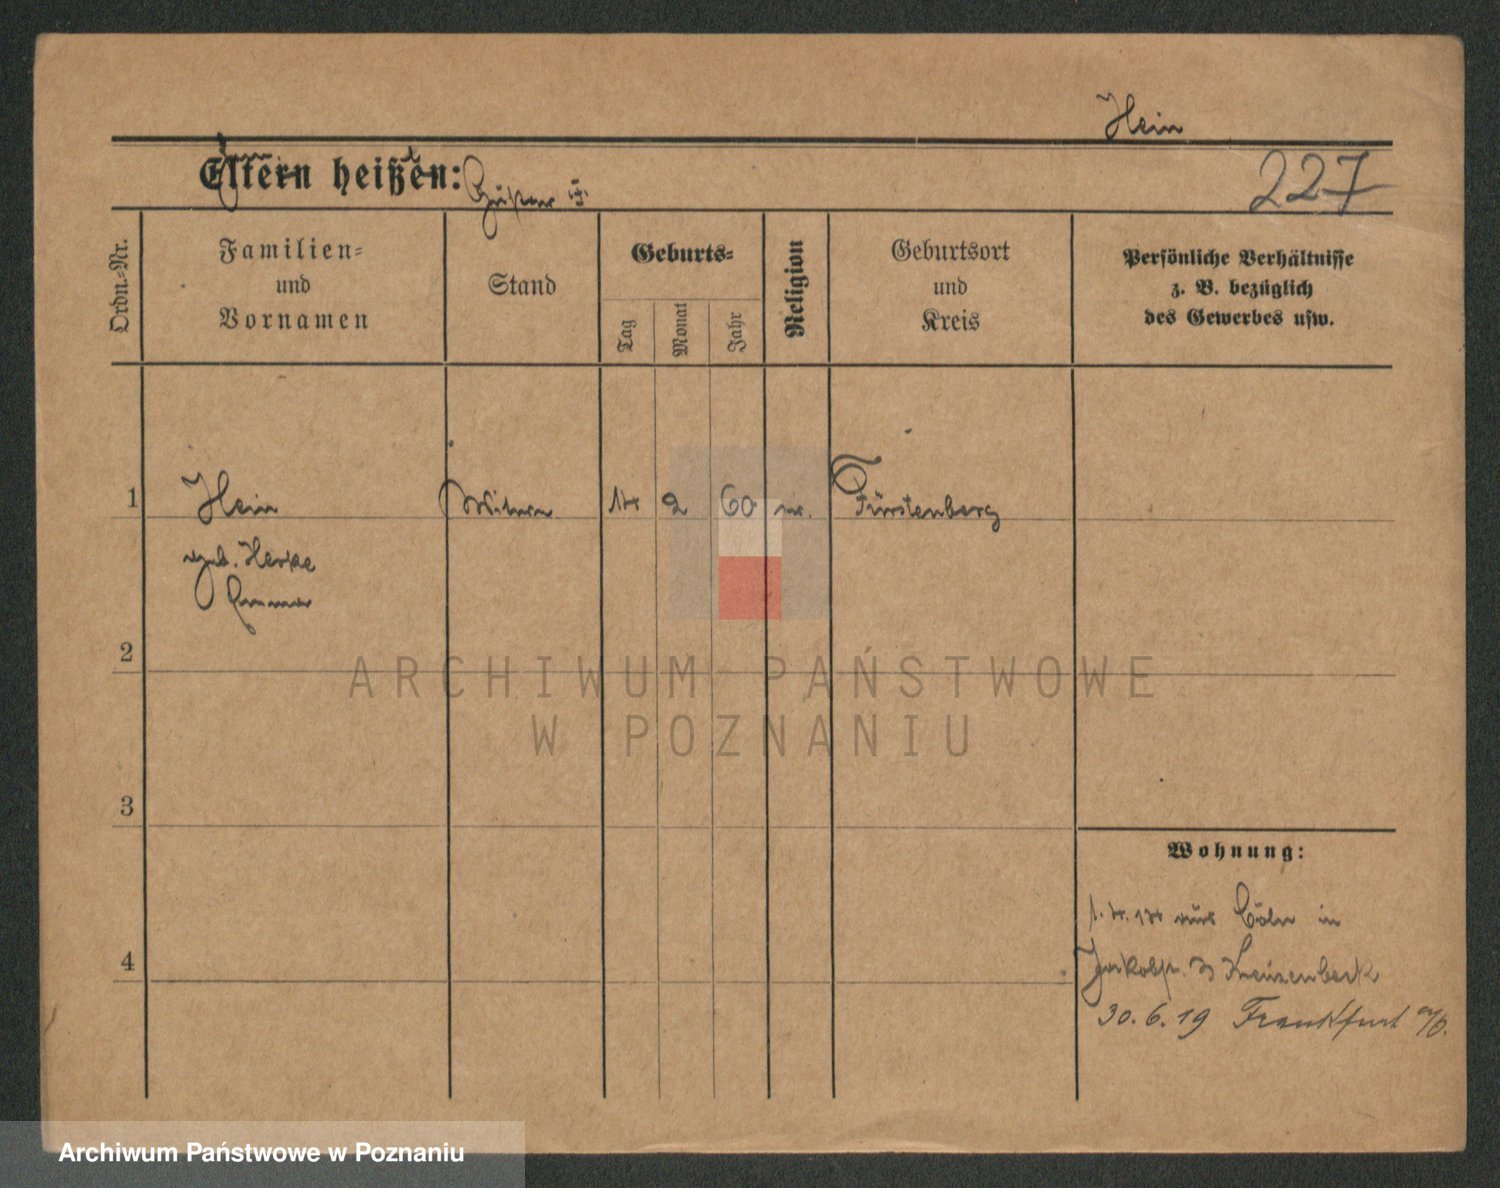 Hein
Eltern heißen:
227
Ordn.-Nr.
Familien-
und
Vornamen
Stand
Geburts-
Tag
Monat
Jahr
Religion
Geburtsort
und
Kreis
Persönliche Verhältnisse
z. B. bezüglich
des Gewerbes usw.
1 Hein Witwe 14 2 60 Fürstenberg
geb.
2
3
4
Wohnung:
Cöln in
30.6.19 Frankfurt a/O.
ARCHIWUM PAŃSTWOWE
W POZNANIU
Archiwum Państwowe w Poznaniu